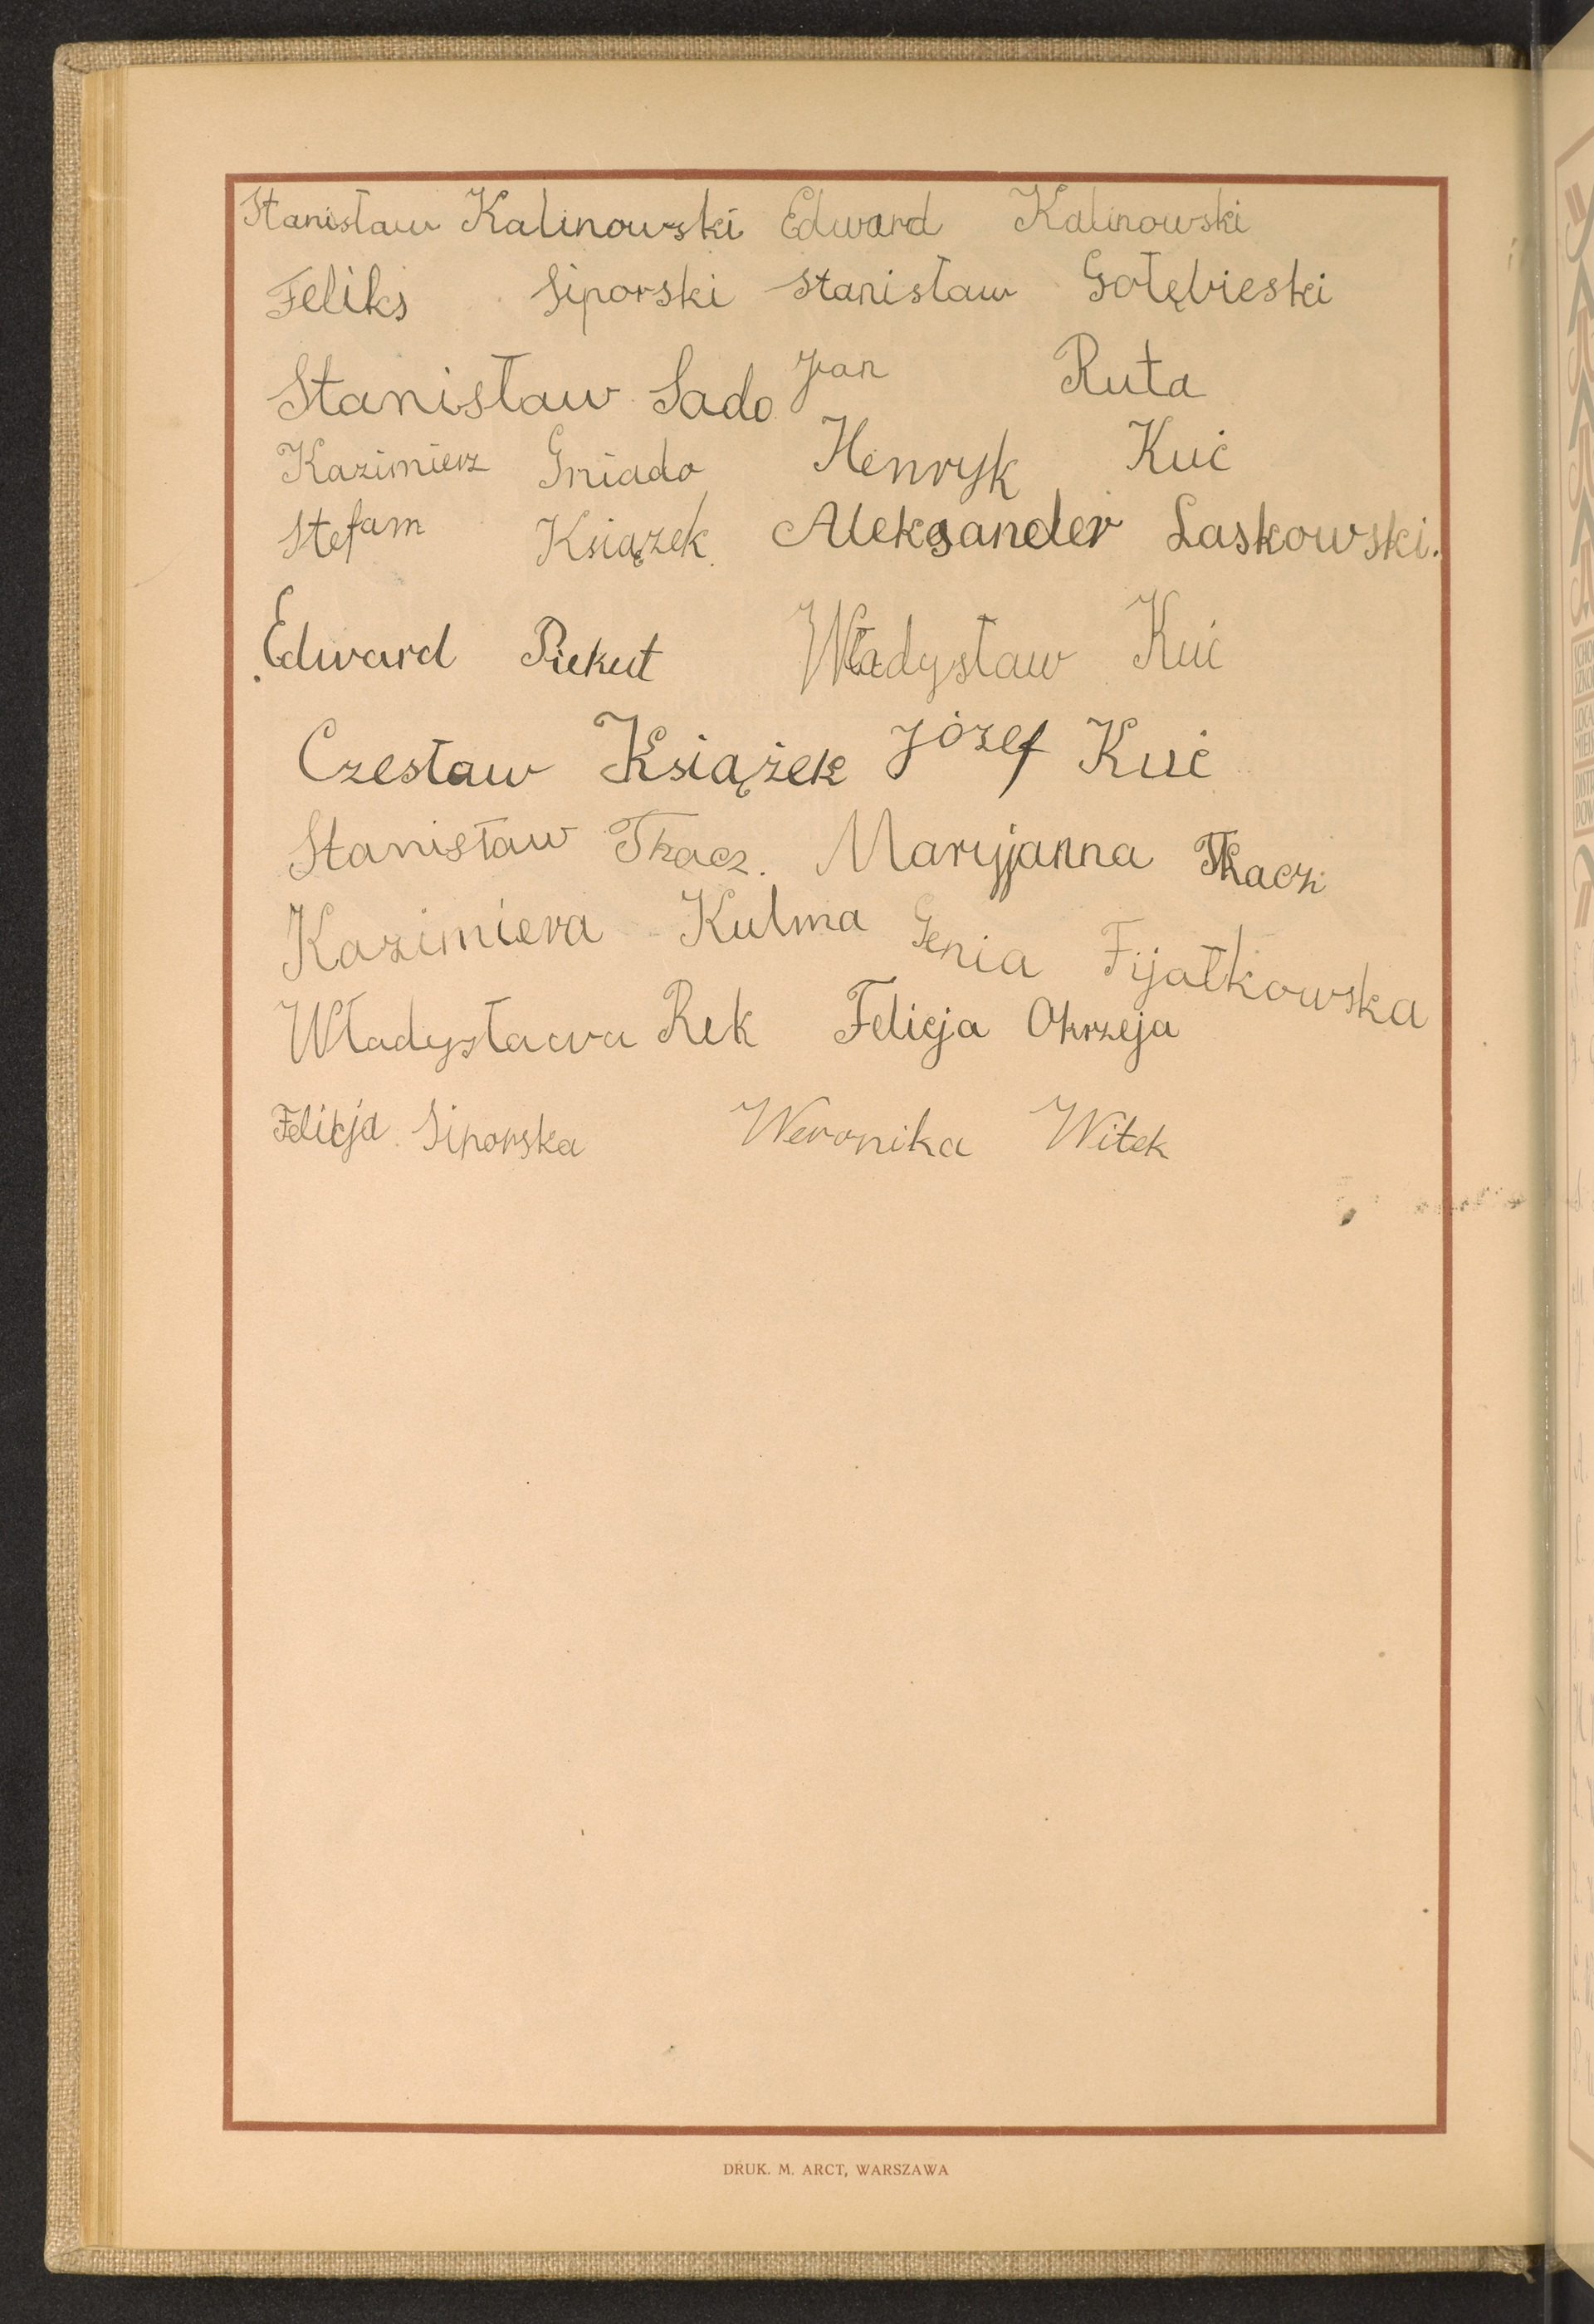 Stanisław Kalinowski Edward Kalinowski
Feliks Siporski Stanisław Gołębieski
Stanisław Sado Jan Ruta
Kazimierz Gniado Henryk Kuć
Stefam Książek Aleksander Laskowski.
Edward Piekut Władysław Kuć
Czesław Książek Józef Kuć
Stanisław Tkacz. Maryjanna Tkacz
Kazimiera Kulma Genia Fijałkowska
Władysława Rek Felicja Okrzeja
Felicja Siporska Weronika Witek
DRUK. M. ARCT, WARSZAWA